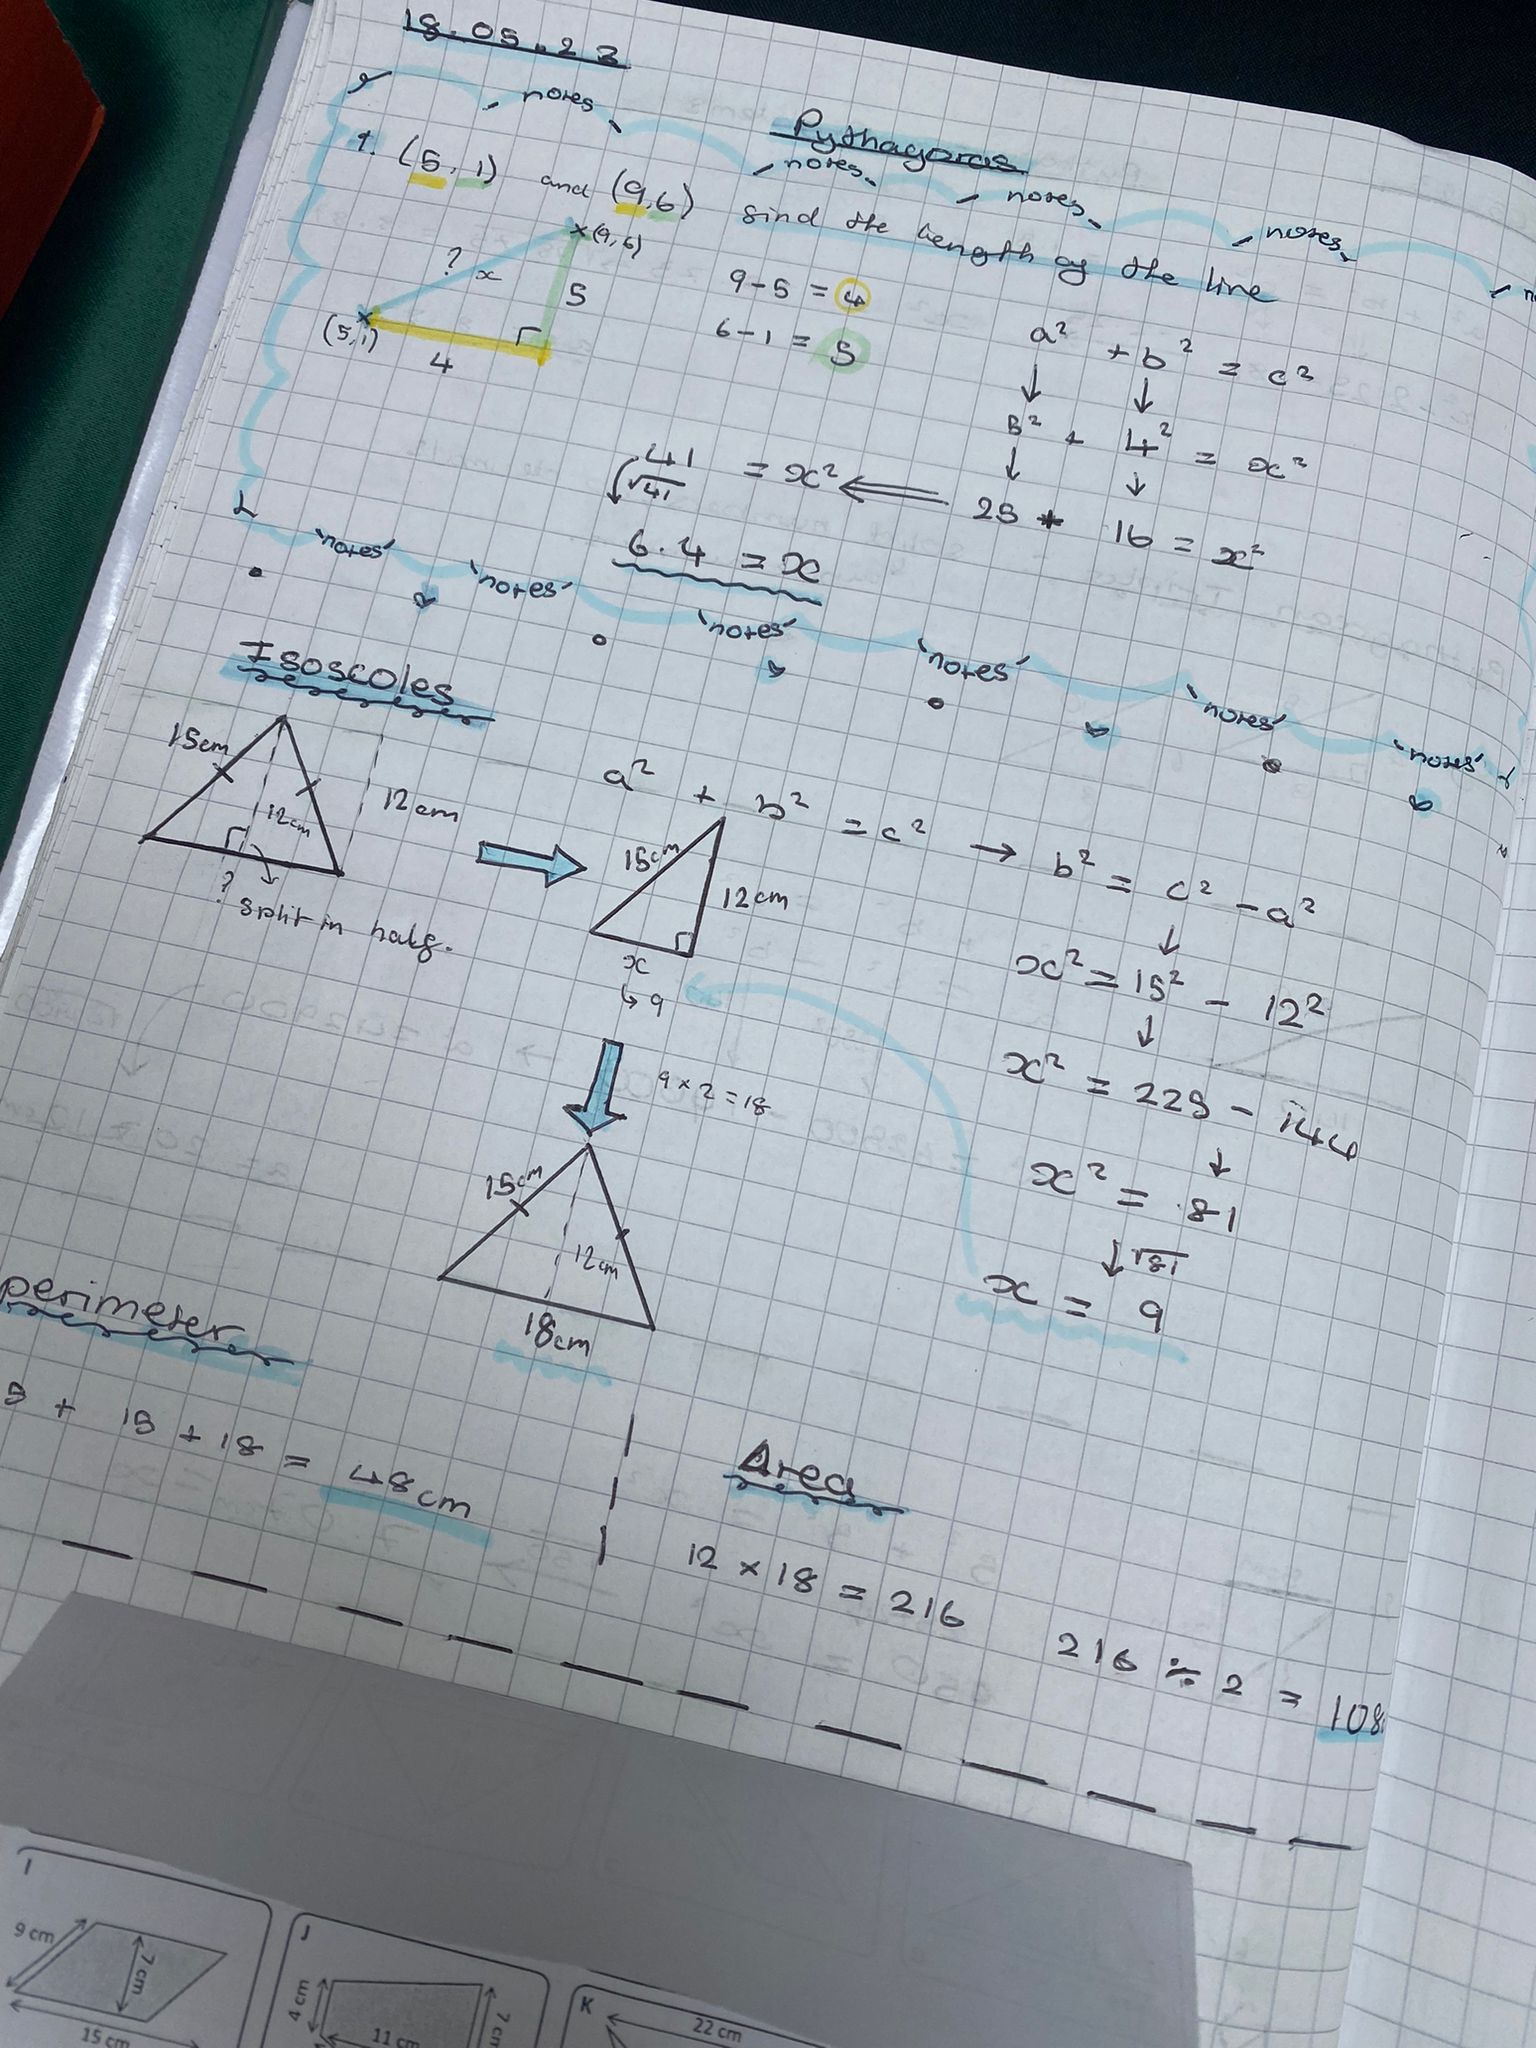 18.05.23
Pythagoras
notes notes notes notes
1. (5,1) and (9,6) find the length of the line
(9,6)
? x
5
(5,1)
4
9-5 = 4
6-1 = 5
a² + b² = c²
5² + 4² = x²
25 + 16 = x²
41 = x²
√41
6.4 = x
'notes' 'notes' 'notes' 'notes' 'notes' 'notes'
Isoscoles
15cm
12cm
12cm
?
split in half.
a² + b² = c² → b² = c² - a²
15cm
12cm
x
↳ 9
x² = 15² - 12²
x² = 225 - 144
x² = 81
√81
x = 9
9 × 2 = 18
15cm
12cm
18cm
perimeter
5 + 15 + 18 = 48cm
Area
12 × 18 = 216
216 ÷ 2 = 108
I
9 cm
7 cm
15 cm
J
4 cm
11 cm
7 cm
K
22 cm